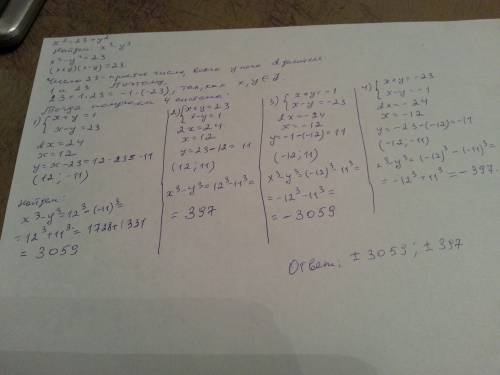 x² = 23 + y²
Найти: x³-y³
x²-y²=23
(x+y)(x-y)=23
Число 23 - простое число, всего у него 2 делителя
1 и 23. Поэтому,
23 = 1·23 = -1·(-23), так, как x, y ∈ Z.
Тогда получаем 4 системы:
1) { x+y=1
x-y=23
2x=24
x=12
y=x-23=12-23=-11
(12; -11)
Найдем:
x³-y³=12³-(-11)³=
=12³+11³=1728+1331
=3059
2) { x+y=23
x-y=1
2x=24
x=12
y=23-12=11
(12; 11)
x³-y³=12³-11³=
=397
3) { x+y=-1
x-y=-23
2x=-24
x=-12
y=-1-(-12)=11
(-12; 11)
x³-y³=(-12)³-11³=
=-12³-11³=
=-3059
4) { x+y=-23
x-y=-1
2x=-24
x=-12
y=-23-(-12)=-11
(-12; -11)
x³-y³=(-12)³-(-11)³=
=-12³+11³=-397.
Ответ: ±3059; ±397